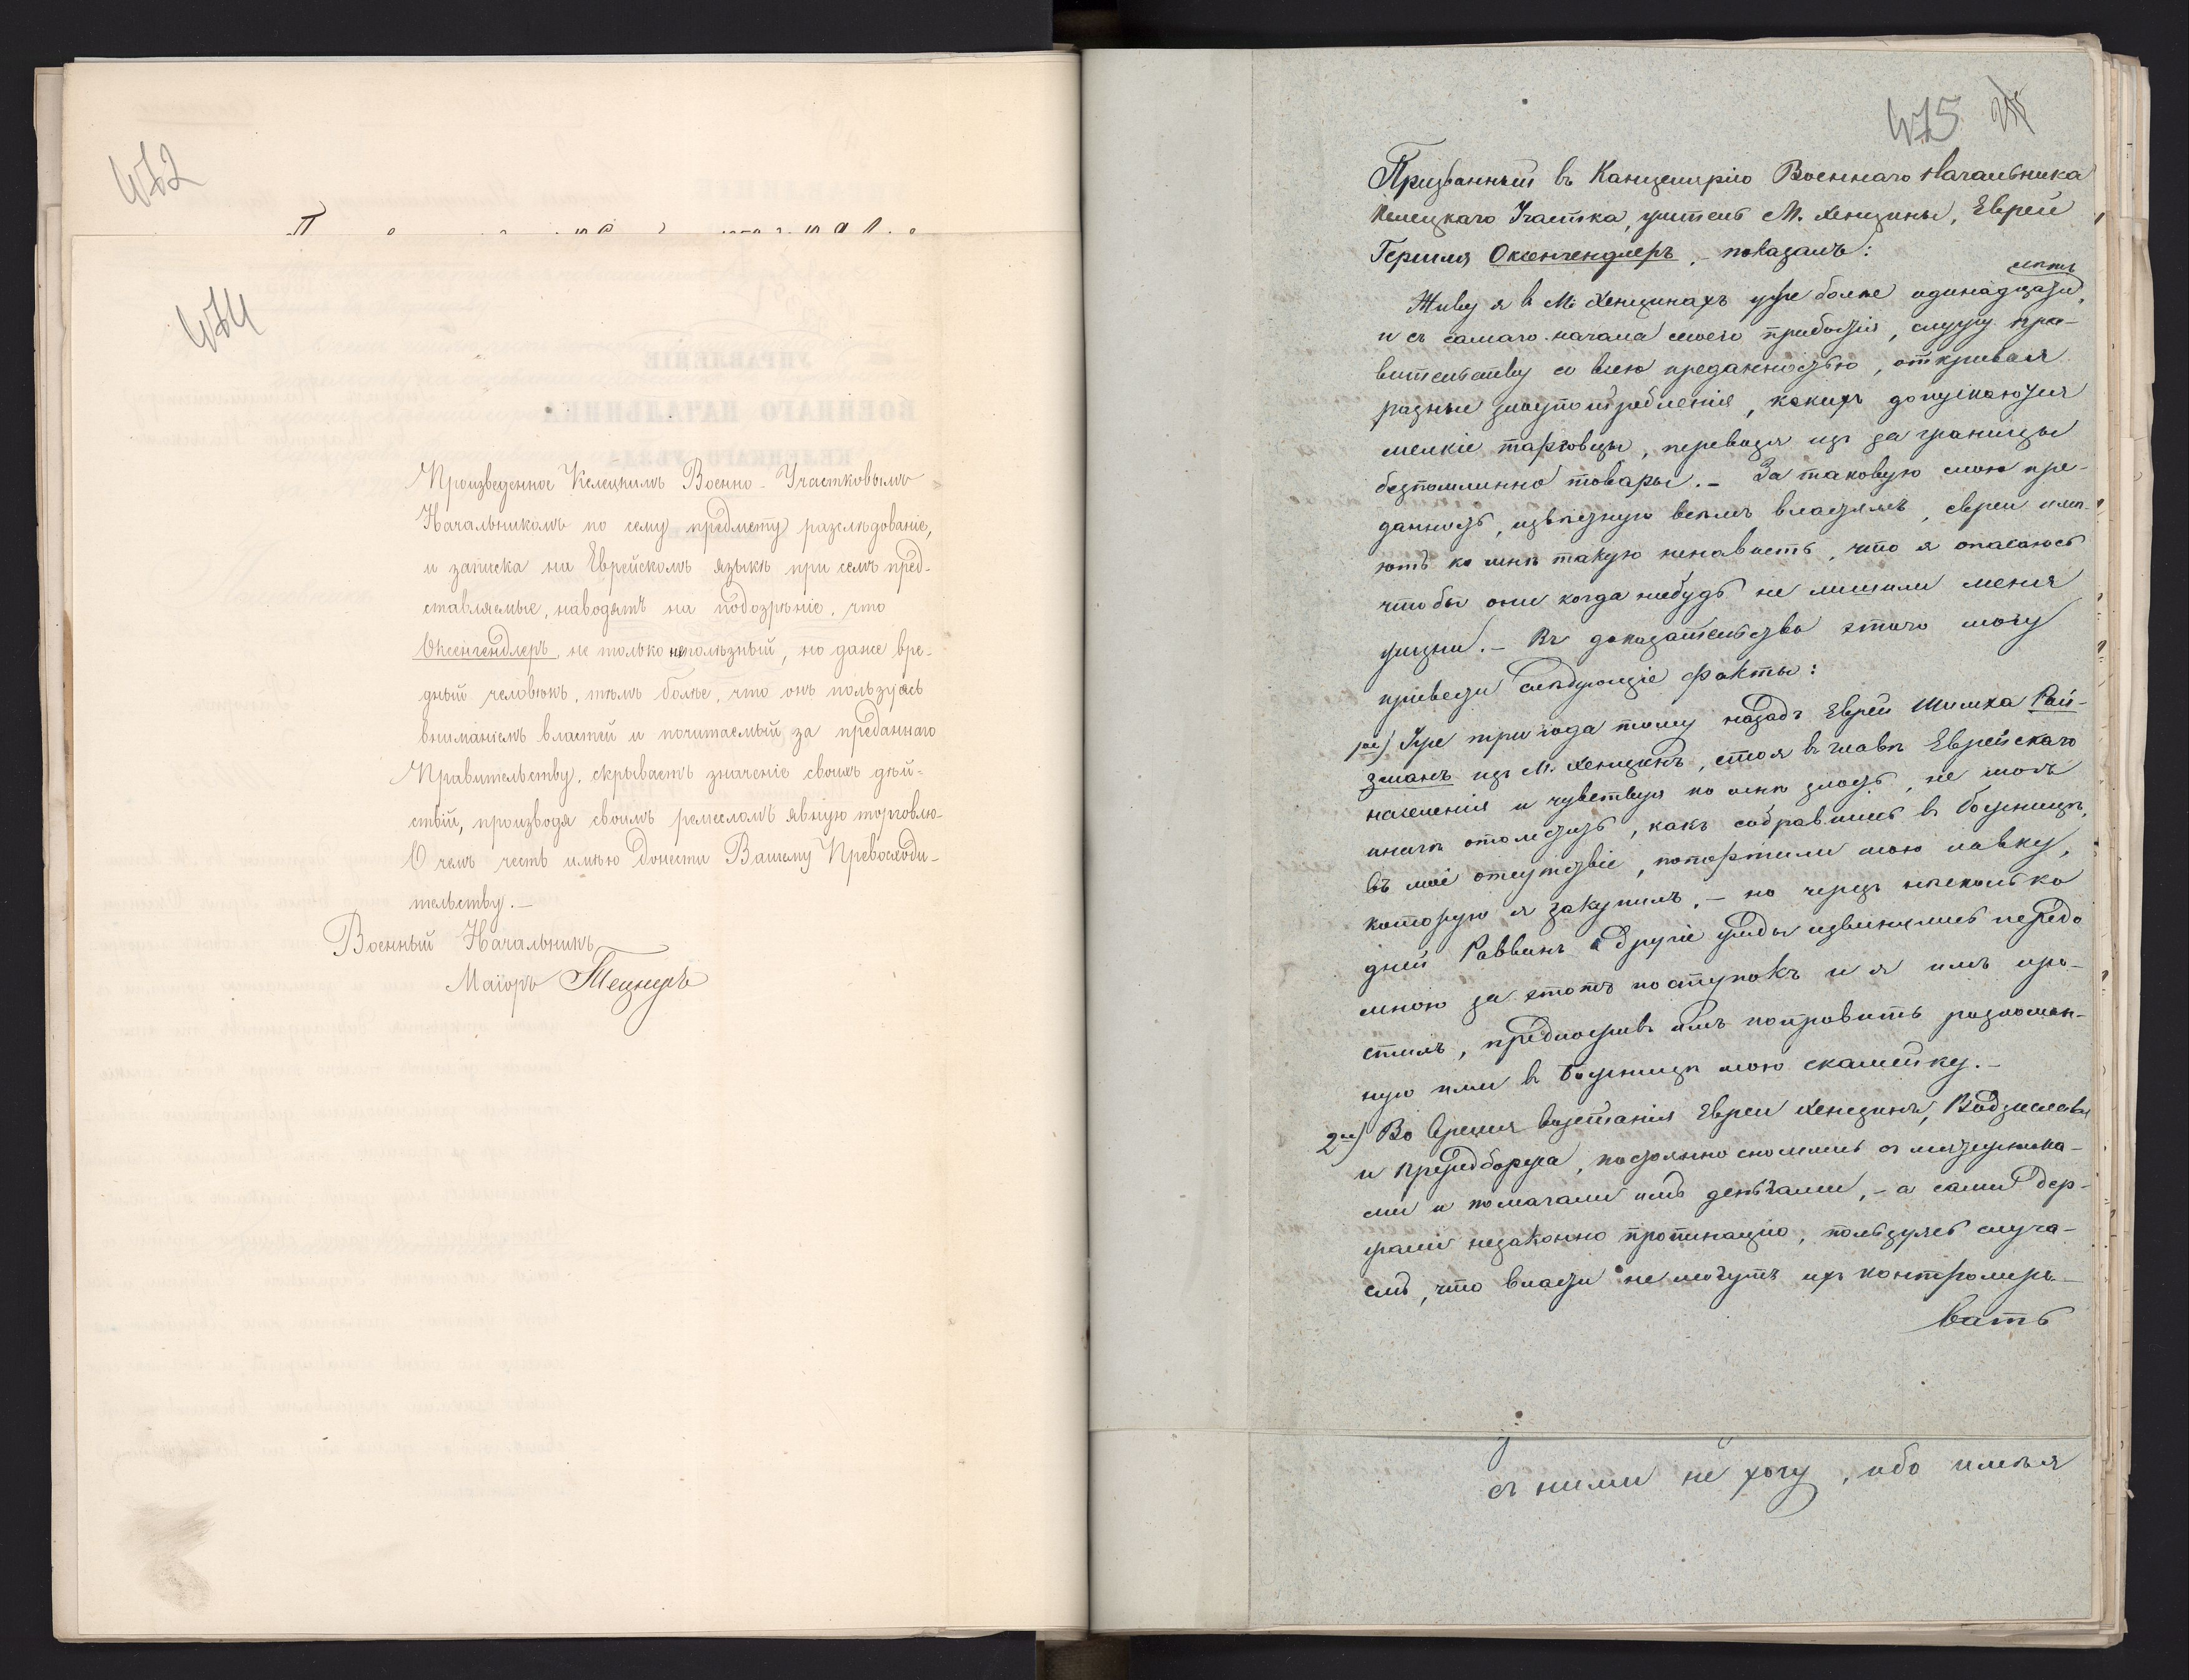 472
474
Произведенное Келецкимъ Военно-Участковымъ
Начальникомъ по сему предмету разслѣдованіе,
и записка на Еврейскомъ языкѣ при семъ пред-
ставляемые, наводятъ на подозрѣніе, что
Оксенгендлеръ, не только неполѣзный, но даже вре-
дный человѣкъ, тѣмъ болѣе, что онъ пользуясь
вниманіемъ властей и почитаемый за преданнаго
Правительству, скрываетъ значеніе своихъ дѣй-
ствій, производя своимъ ремесломъ явную торговлю.
О чемъ честь имѣю донести Вашему Превосходи-
тельству.—
Военный Начальникъ
Маіоръ
475
Призванный въ Канцелярію Военнаго Начальника
Келецкаго Участка, житель М. Хенцины, Еврей
Гершля Оксенгендлеръ,- показалъ:
Живу я в М. Хенцинахъ уже болѣе одинадцати лѣтъ,
и съ самаго начала моего прибытія, служу пра-
вительству со всею преданностью, открывая
разныя злоупотребленія, какихъ допускаются
мелкіе торговцы, переводя изъ за границы
безпошлинно товары.- За таковую мою пре-
данность, извѣстную всѣмъ властямъ, евреи имѣ-
ютъ ко мнѣ такую ненависть, что я опасаюсь
чтобы они когда нибудь не лишили меня
жизни.- Въ доказательство этаго могу
привести слѣдующіе факты:
1ое) Уже три года тому назадъ Еврей Шимха Рай-
зманъ изъ М. Хенцинъ, стоя в главѣ Еврейскаго
населенія и чувствуя ко мнѣ злость, не могъ
иначе отомстить, какъ собравшись в божницѣ,
въ мое отсутствіе, попортили мою лавку,
которую я закупилъ,- но черезъ нѣсколько
дней Раввинъ и другіе жиды извинились передо
мною за этотъ поступокъ и я имъ про-
стилъ, предложивъ имъ поправить разломан-
ную ими в божницѣ мою скамейку.-
2ое) Во время возстанія Евреи Хенцинъ, Водзислава
и Пржедборжа, постоянно сносились съ мятежника-
ми и помагали имъ деньгами,- а сами дер-
жали незаконно пропинацію, пользуясь случа-
емъ, что власти не могутъ ихъ контролиро-
вать
съ ними не хочу, ибо имѣя